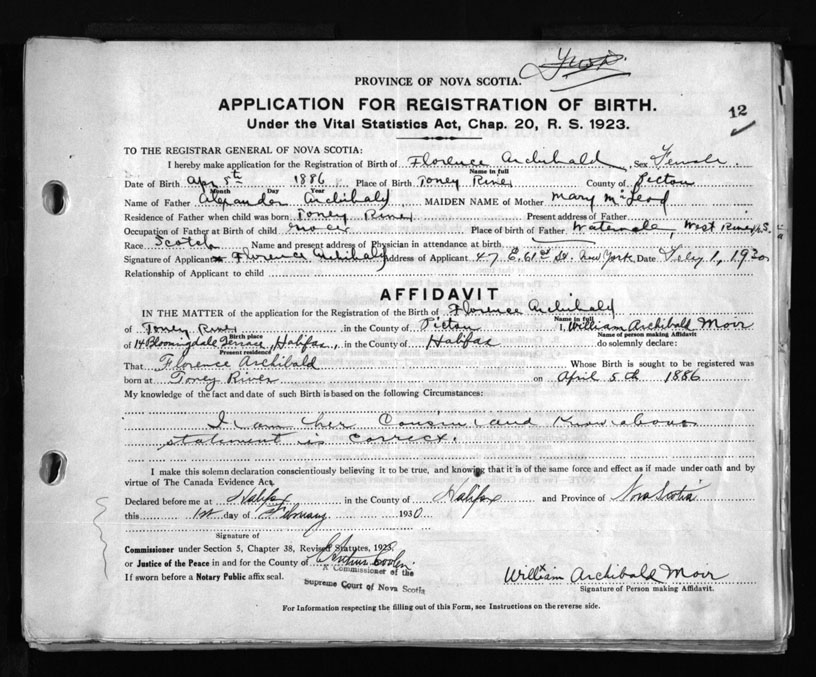 PROVINCE OF NOVA SCOTIA.
APPLICATION FOR REGISTRATION OF BIRTH.
12
Under the Vital Statistics Act, Chap. 20, R. S. 1923.
TO THE REGISTRAR GENERAL OF NOVA SCOTIA:
I hereby make application for the Registration of Birth of Florence Archibald, Sex Female.
Name in full
Date of Birth Apr 5th 1886 Place of Birth Toney River County of Pictou
Month Day Year
Name of Father Alexander Archibald MAIDEN NAME of Mother Mary McLeod
Residence of Father when child was born Toney River Present address of Father
Occupation of Father at Birth of child Place of birth of Father Watervale, West River N.S.
Race Scotch Name and present address of Physician in attendance at birth
Signature of Applicant Florence Archibald Address of Applicant 47 E. 61st St. New York Date Feby 1, 1930
Relationship of Applicant to child
AFFIDAVIT
IN THE MATTER of the application for the Registration of the Birth of Florence Archibald
Name in full
of Toney River in the County of Pictou I, William Archibald Moir
Birth place Name of person making Affidavit
of 14 Bloomigdale Terrace, Halifax, in the County of Halifax do solemnly declare:
Present residence
That Florence Archibald Whose Birth is sought to be registered was
born at Toney River on April 5th 1886
My knowledge of the fact and date of such Birth is based on the following Circumstances:
I am her Cousin and know above
statement is correct.
I make this solemn declaration conscientiously believing it to be true, and knowing that it is of the same force and effect as if made under oath and by
virtue of The Canada Evidence Act.
Declared before me at Halifax in the County of Halifax and Province of Nova Scotia
this 1st day of February 1930
Signature of
Commissioner under Section 5, Chapter 38, Revised Statutes, 1923.
or Justice of the Peace in and for the County of
A Commissioner of the
If sworn before a Notary Public affix seal.
Supreme Court of Nova Scotia
William Archibald Moir
Signature of Person making Affidavit.
For Information respecting the filling out of this Form, see Instructions on the reverse side.